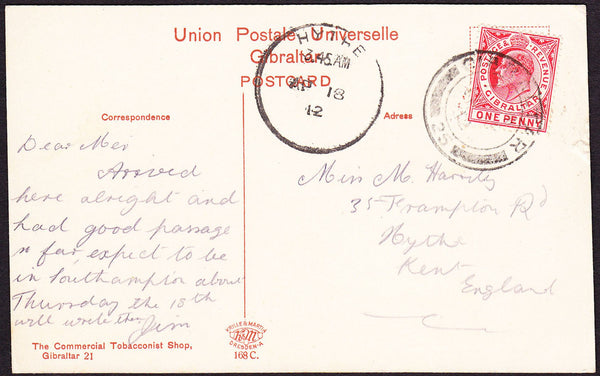 Union Postale Universelle
Gibraltar
POSTCARD
HYTHE
3.45 AM
18
12
POSTAGE & REVENUE
GIBRALTAR
ONE PENNY
Correspondence
Adress
Dear Mer
Arrived
here alright and
had good passage
so far, expect to be
in Southampton about
Thursday the 18th
will write then
Jim
Miss M.
35 Frampton Rd
Hythe
Kent
England
The Commercial Tobacconist Shop,
Gibraltar 21
DRESDEN-A
168 C.